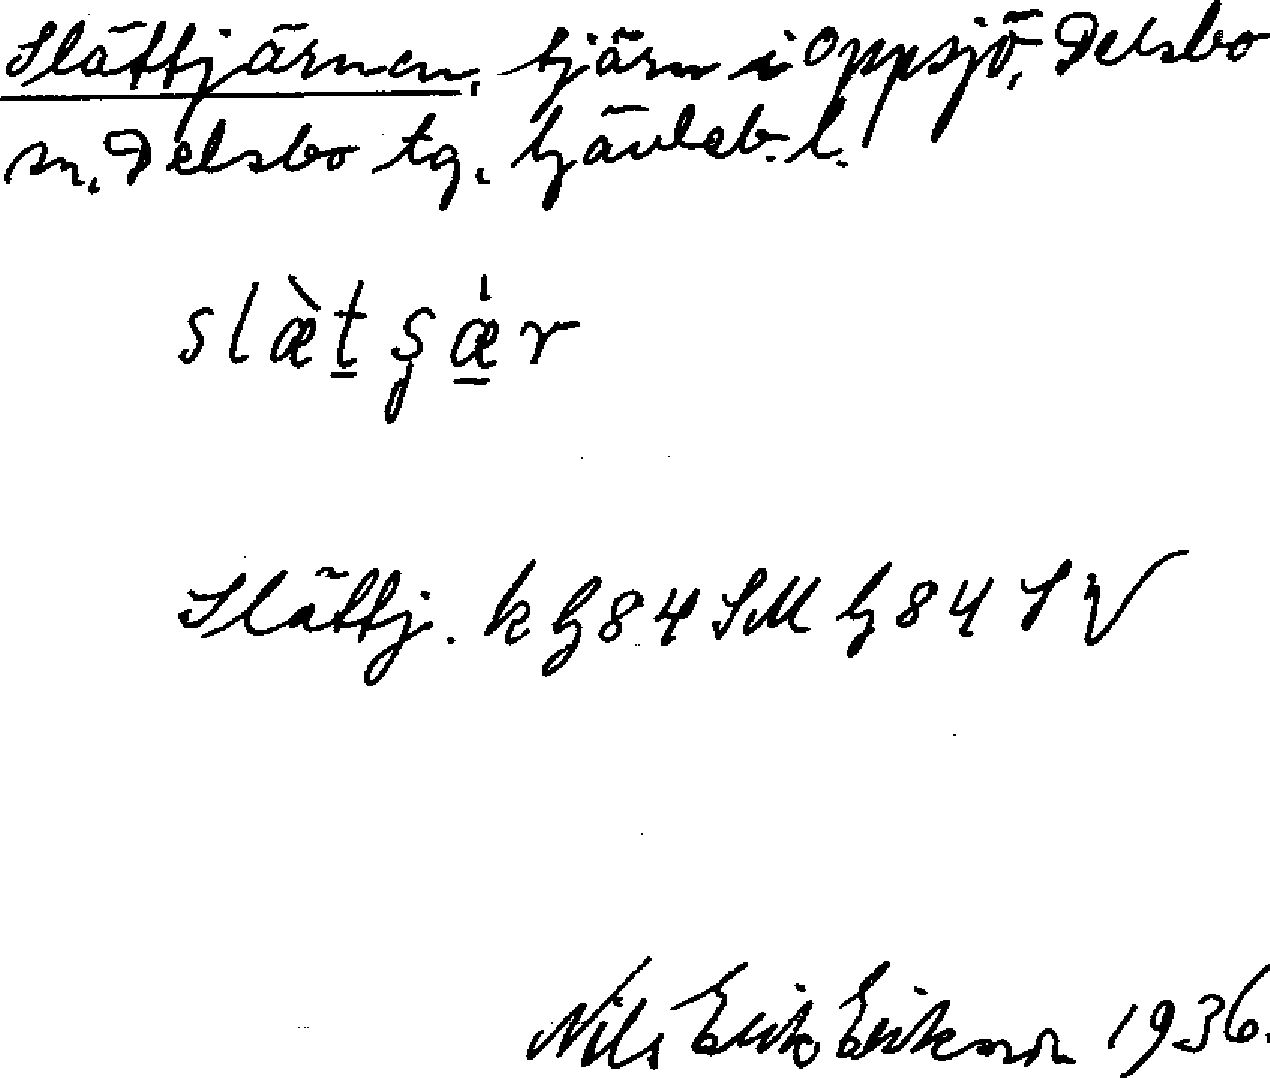 Slättjärnen, tjärn i Oppsjö, Delsbo
sn, Delsbo tg, Gävleb. l.
slæ̀t̠ ʂæ̠̍r
Slättj. k G84 SM G84 SV
Nils Erik Eriksson 1936.